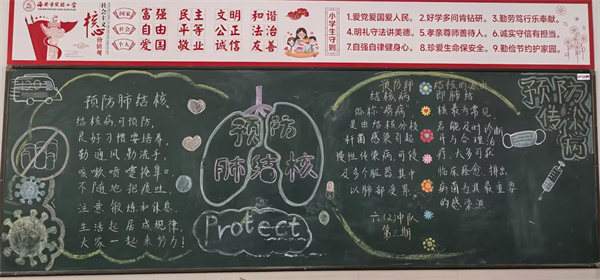 海南省农垦实验小学
社会主义
核心
价值观
国家
社会
个人
富强 民主 文明 和谐
自由 平等 公正 法治
爱国 敬业 诚信 友善
小学生守则
1.爱党爱国爱人民。 2.好学多问肯钻研。 3.勤劳笃行乐奉献。
4.明礼守法讲美德。 5.孝亲尊师善待人。 6.诚实守信有担当。
7.自强自律健身心。 8.珍爱生命保安全。 9.勤俭节约护家园。
预防肺结核
结核病可预防,
良好习惯要培养。
勤通风勤洗手,
咳嗽喷嚏掩单。
不随地把痰吐。
注意锻炼和休息,
生活起居成规律,
大家一起来努力!
预防
肺结核
Protect
预防肺
结核病
俗称痨病
是由结核分枝
杆菌感染引起
慢性传染病,可侵
及多个脏器其中
以肺部受累
结核的
即肺结
核最为常见
若能及时诊断
并予合理治
疗,大多可获
临床痊愈,排出
病菌为其最重要
的感染源
六(2)中队
第三期
预防
传染病